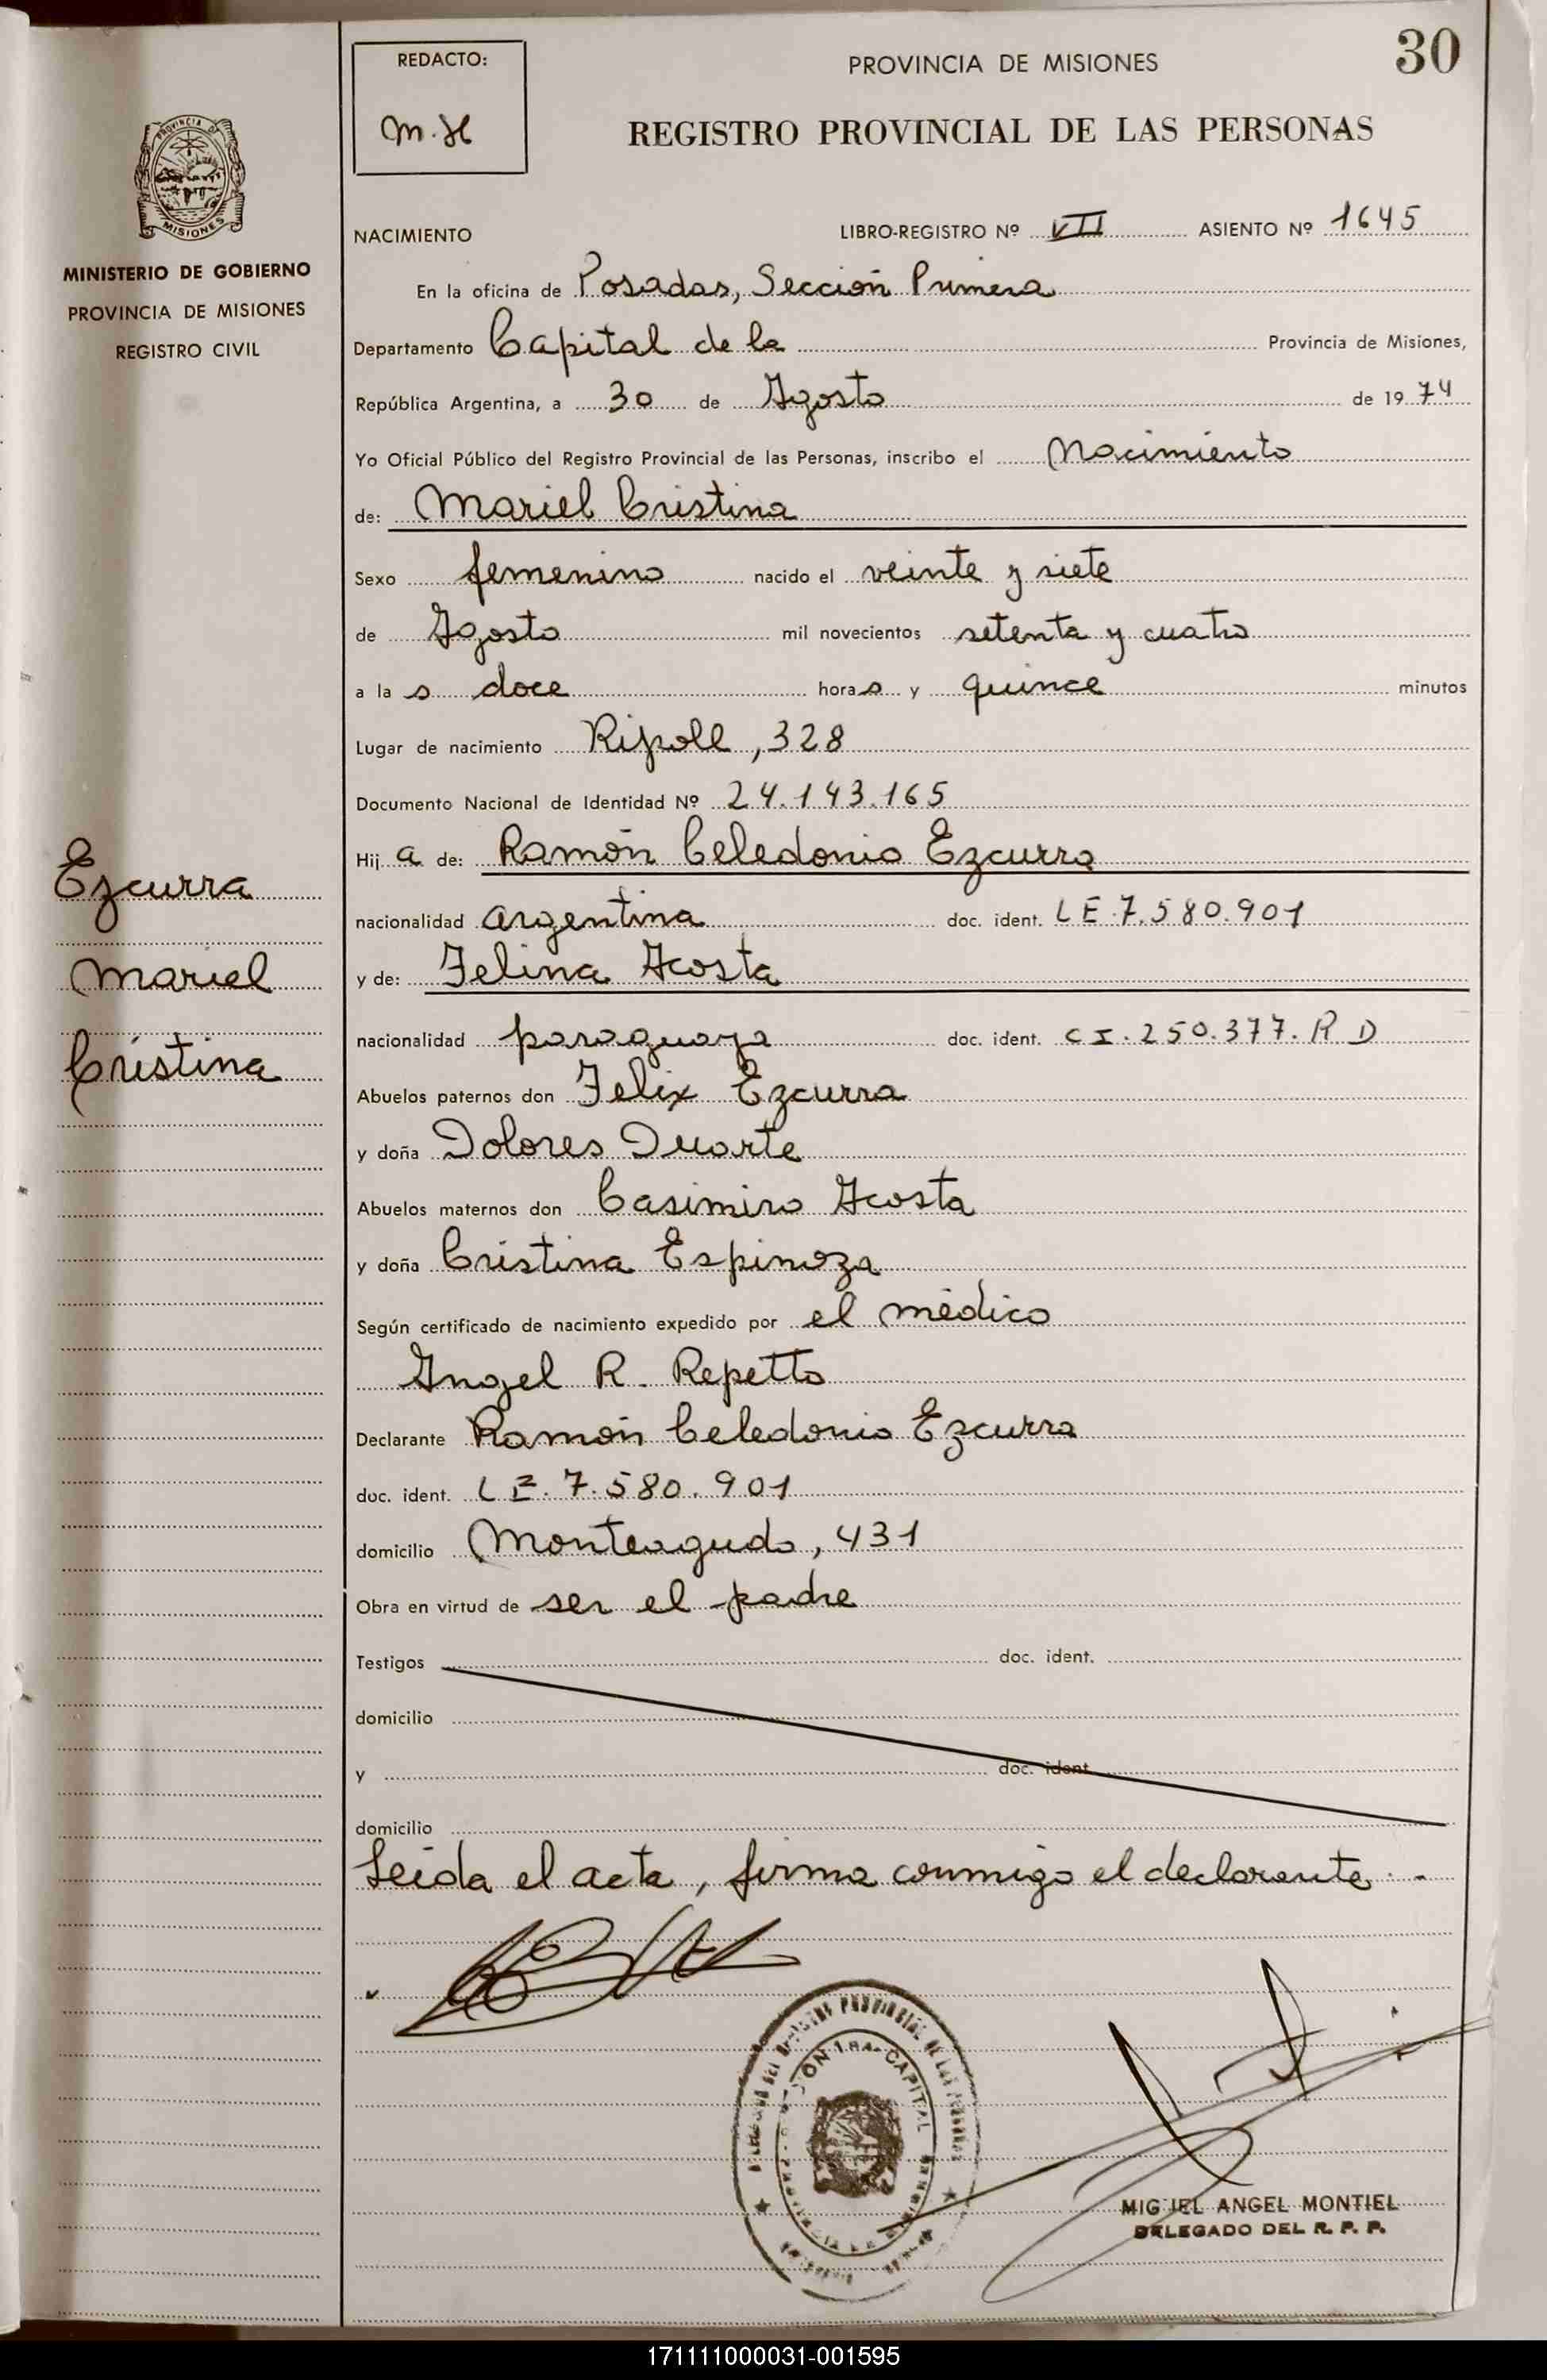 30
REDACTO:
m.H
PROVINCIA DE MISIONES
REGISTRO PROVINCIAL DE LAS PERSONAS
PROVINCIA DE
MISIONES
MINISTERIO DE GOBIERNO
PROVINCIA DE MISIONES
REGISTRO CIVIL
NACIMIENTO LIBRO-REGISTRO Nº VII ASIENTO Nº 1645
En la oficina de Posadas, Sección Primera
Departamento Capital de la Provincia de Misiones,
República Argentina, a 30 de Agosto de 1974
Yo Oficial Público del Registro Provincial de las Personas, inscribo el Nacimiento
de: Mariel Cristina
Sexo femenino nacido el veinte y siete
de Agosto mil novecientos setenta y cuatro
a las doce horas y quince minutos
Lugar de nacimiento Ripoll, 328
Documento Nacional de Identidad Nº 24.143.165
Hija de: Ramón Celedonio Ezcurra
nacionalidad argentina doc. ident. LE.7.580.901
y de: Felina Acosta
nacionalidad paraguaya doc. ident. CI.250.377.R D
Abuelos paternos don Felix Ezcurra
y doña Dolores Duarte
Abuelos maternos don Casimiro Acosta
y doña Cristina Espinoza
Según certificado de nacimiento expedido por el médico
Angel R. Repetto
Declarante Ramón Celedonio Ezcurra
doc. ident. LE. 7.580.901
domicilio Monteagudo, 431
Obra en virtud de ser el padre
Testigos doc. ident.
domicilio
y doc. ident
domicilio
Leida el acta, firma conmigo el declarante.-
Ezcurra
Mariel
Cristina
PROVINCIAL DE LAS PERSONAS
1RA CAPITAL
MIGUEL ANGEL MONTIEL
DELEGADO DEL R. P. P.
171111000031-001595